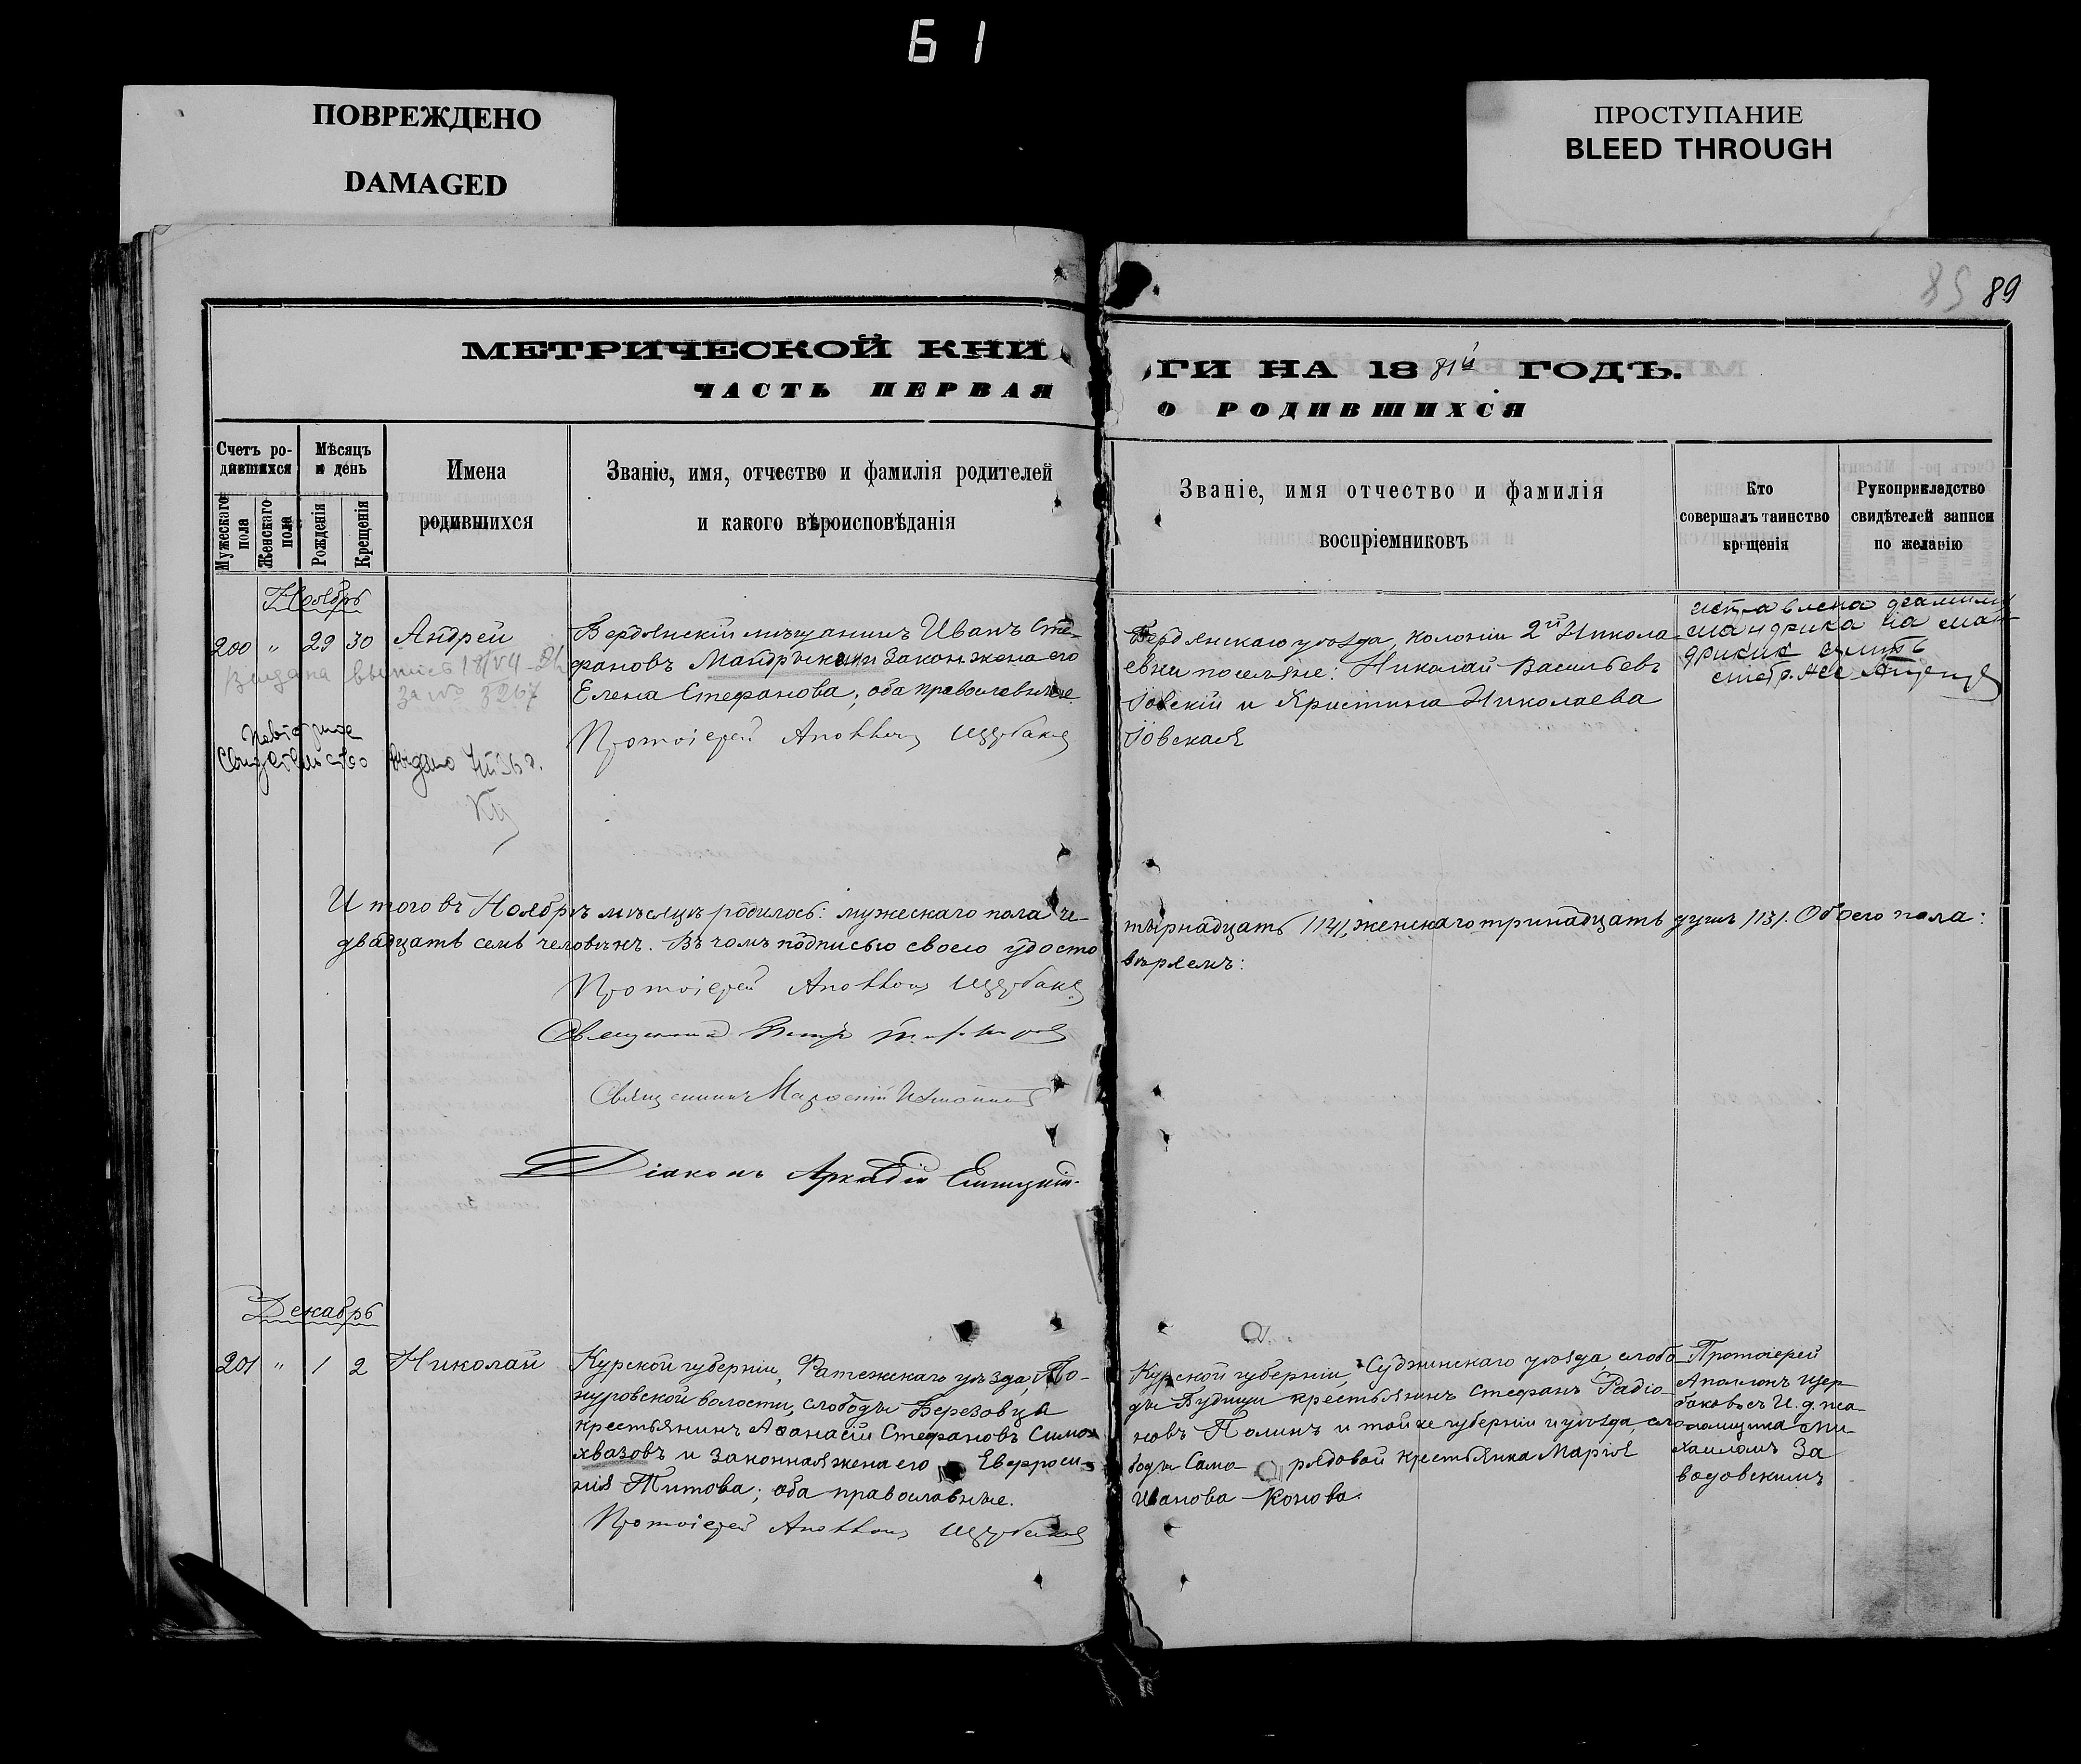 61
ПОВРЕЖДЕНО
DAMAGED
ПРОСТУПАНИЕ
BLEED THROUGH
89
89
МЕТРИЧЕСКОЙ КНИ
ГИ НА 1881й ГОДЪ.
ЧАСТЬ ПЕРВАЯ
О РОДИВШИХСЯ
Счетъ ро-
дившихся
Мужескаго пола
Женскаго пола
Мѣсяцъ
и день
Рожденія
Крещенія
Имена
родившихся
Званіе, имя, отчество и фамилія родителей
и какого вѣроисповѣданія
Званіе, имя отчество и фамилія
воспріемниковъ
Кто
совершалъ таинство
крещенія
Рукоприкладство
свидѣтелей записи
по желанію
Ноябрь
200 " 29 30 Андрей
Выдана выпись 18/VII
за № 3267
Повторное
Свидетельство выдано
Бердянскій мѣщанинъ Иванъ Сте-
фановъ и законн. жена его
Елена Стефанова; оба православные.
Протоіерей Аполлонъ Щербаковъ
Бердянскаго уѣзда, колоніи 2й Никола-
евки поселяне: Николай Васильевъ
Іовскій и Христина Николаева
Іовская
исправлена фамилия
мандрика на ман-
Итого въ Ноябрѣ мѣсяцѣ родилось: мужескаго пола че-
тырнадцать /14/, женскаго тринадцать душъ /13/. Обоего пола:
двадцать семь человѣкъ. Въ чомъ подписью своею удосто
вѣряемъ:
Протоіерей Аполлонъ Щербаковъ
Священникъ Петръ
Священникъ
Діаконъ Аркадій
Декабрь
201 " 1 2 Николай
Курской губерніи, Фатежскаго уѣзда,
волости, слободы Березовца
крестьянинъ Аѳанасій Стефановъ Само
хваловъ и законная жена его Евфроси-
нія Титова; оба православные.
Протоіерей Аполлонъ Щербаковъ
Курской губерніи, Суджинскаго уѣзда, слобо-
ды Будищи крестьянинъ Стефанъ Радіо-
новъ Полинъ и той же губерніи и уѣзда, сло
боды Само рядовой крестьянка Марія
Иванова Конова.
Протоіерей
Аполлонъ Щер
баковъ съ И. д. пса-
ломщика Ми-
хаиломъ За
водовскимъ